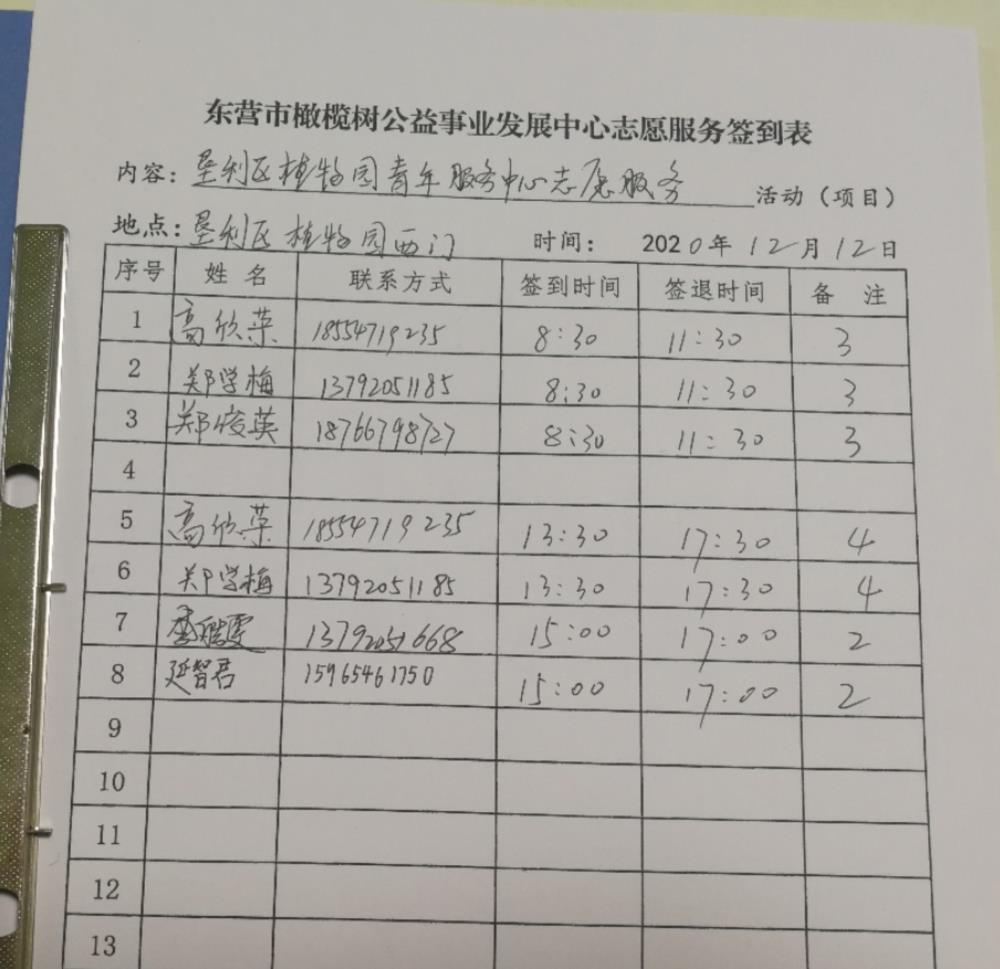 东营市橄榄树公益事业发展中心志愿服务签到表
内容：垦利区植物园青年服务中心志愿服务 活动（项目）
地点：垦利区植物园西门 时间： 2020年12月12日
序号 姓名 联系方式 签到时间 签退时间 备注
1 高欣荣 18554719235 8:30 11:30 3
2 郑学梅 13792051185 8:30 11:30 3
3 郑俊英 18766798727 8:30 11:30 3
4
5 高欣荣 18554719235 13:30 17:30 4
6 郑学梅 13792051185 13:30 17:30 4
7 13792051668 15:00 17:00 2
8 延智君 15965461750 15:00 17:00 2
9
10
11
12
13